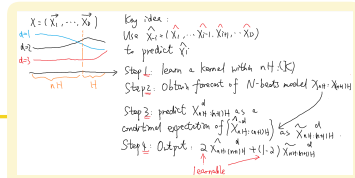 X = (X⃗₁, ⋯, X⃗_D)
d=1
d=2
d=3
nH
H
Key idea:
Use X̂₋ᵢ = (X̂₁, ⋯ X̂ᵢ₋₁, X̂ᵢ₊₁, ⋯ X̂_D)
to predict Ŷᵢ
Step 1: learn a kernel within nH. (K)
Step 2: Obtain forecast of N-beats model X̂nH:(n+1)H
Step 3: predict X^d nH:(n+1)H as a
conditional expectation of {X̂^-d nH:(n+1)H} as X̃^d nH:(n+1)H.
Step 4: Output: λ X̂^d nH:(n+1)H + (1-λ) X̃^d nH:(n+1)H
learnable